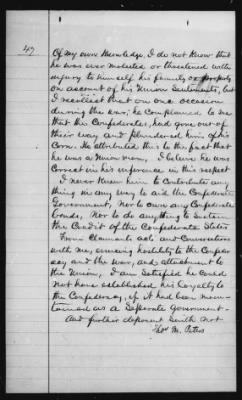 47
Of my own knowledge, I do not know that
he was ever molested or threatened with
injury to himself his family or property
on account of his Union Sentiments, but
I recollect that on one occasion
during the war, he complained to me
that the Confederates, had gone out of
their way and plundered him of his
Corn. He attributed this to the fact that
he was a Union man, I believe he was
Correct in his inference in this respect
I never knew him to Contribute any
thing in any way to aid the Confederate
Government, nor to own any Confederate
bonds, nor to do any thing to sustain
the Credit of the Confederate States
From Claimants acts and Conversations
with me, evincing hostility to the Confeder
acy and the war, and attachment to
the Union, I am Satisfied he could
not have established his loyalty to
the Confederacy, if it had been main-
tained as a Separate Government.
And further deponent Saith not
Thos M. Peters